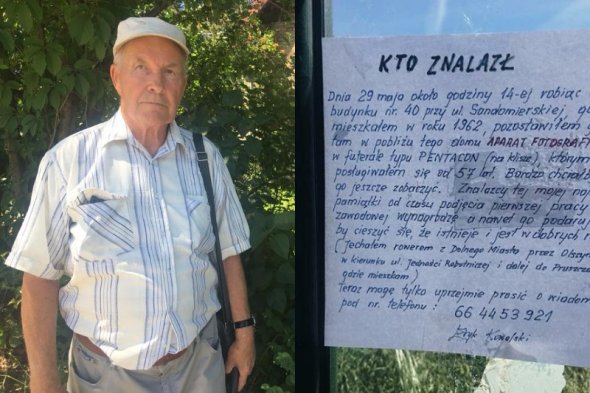 KTO ZNALAZŁ
Dnia 29 maja około godziny 14-ej robiąc
budynku nr. 40 przy ul. Sandomierskiej, g
mieszkałem w roku 1962, pozostawiłem
tam w pobliżu tego domu APARAT FOTOGRAF
w futerale typu PENTACON (na kliszę), którym
posługiwałem się od 57 lat. Bardzo chciał
go jeszcze zobaczyć. Znalazcy tej mojej
pamiątki od czasu podjęcia pierwszej pracy
zawodowej wynagrodzę a nawet go podaruj
by cieszyć się, że istnieje i jest w dobrych r
(Jechałem rowerem z Dolnego Miasta przez Olszyn
w kierunku ul. Jedności Robotniczej i dalej do Pruszcza
gdzie mieszkam)
Teraz mogę tylko uprzejmie prosić o wiadom
pod nr. telefonu :
66 4453 921
Kowalski